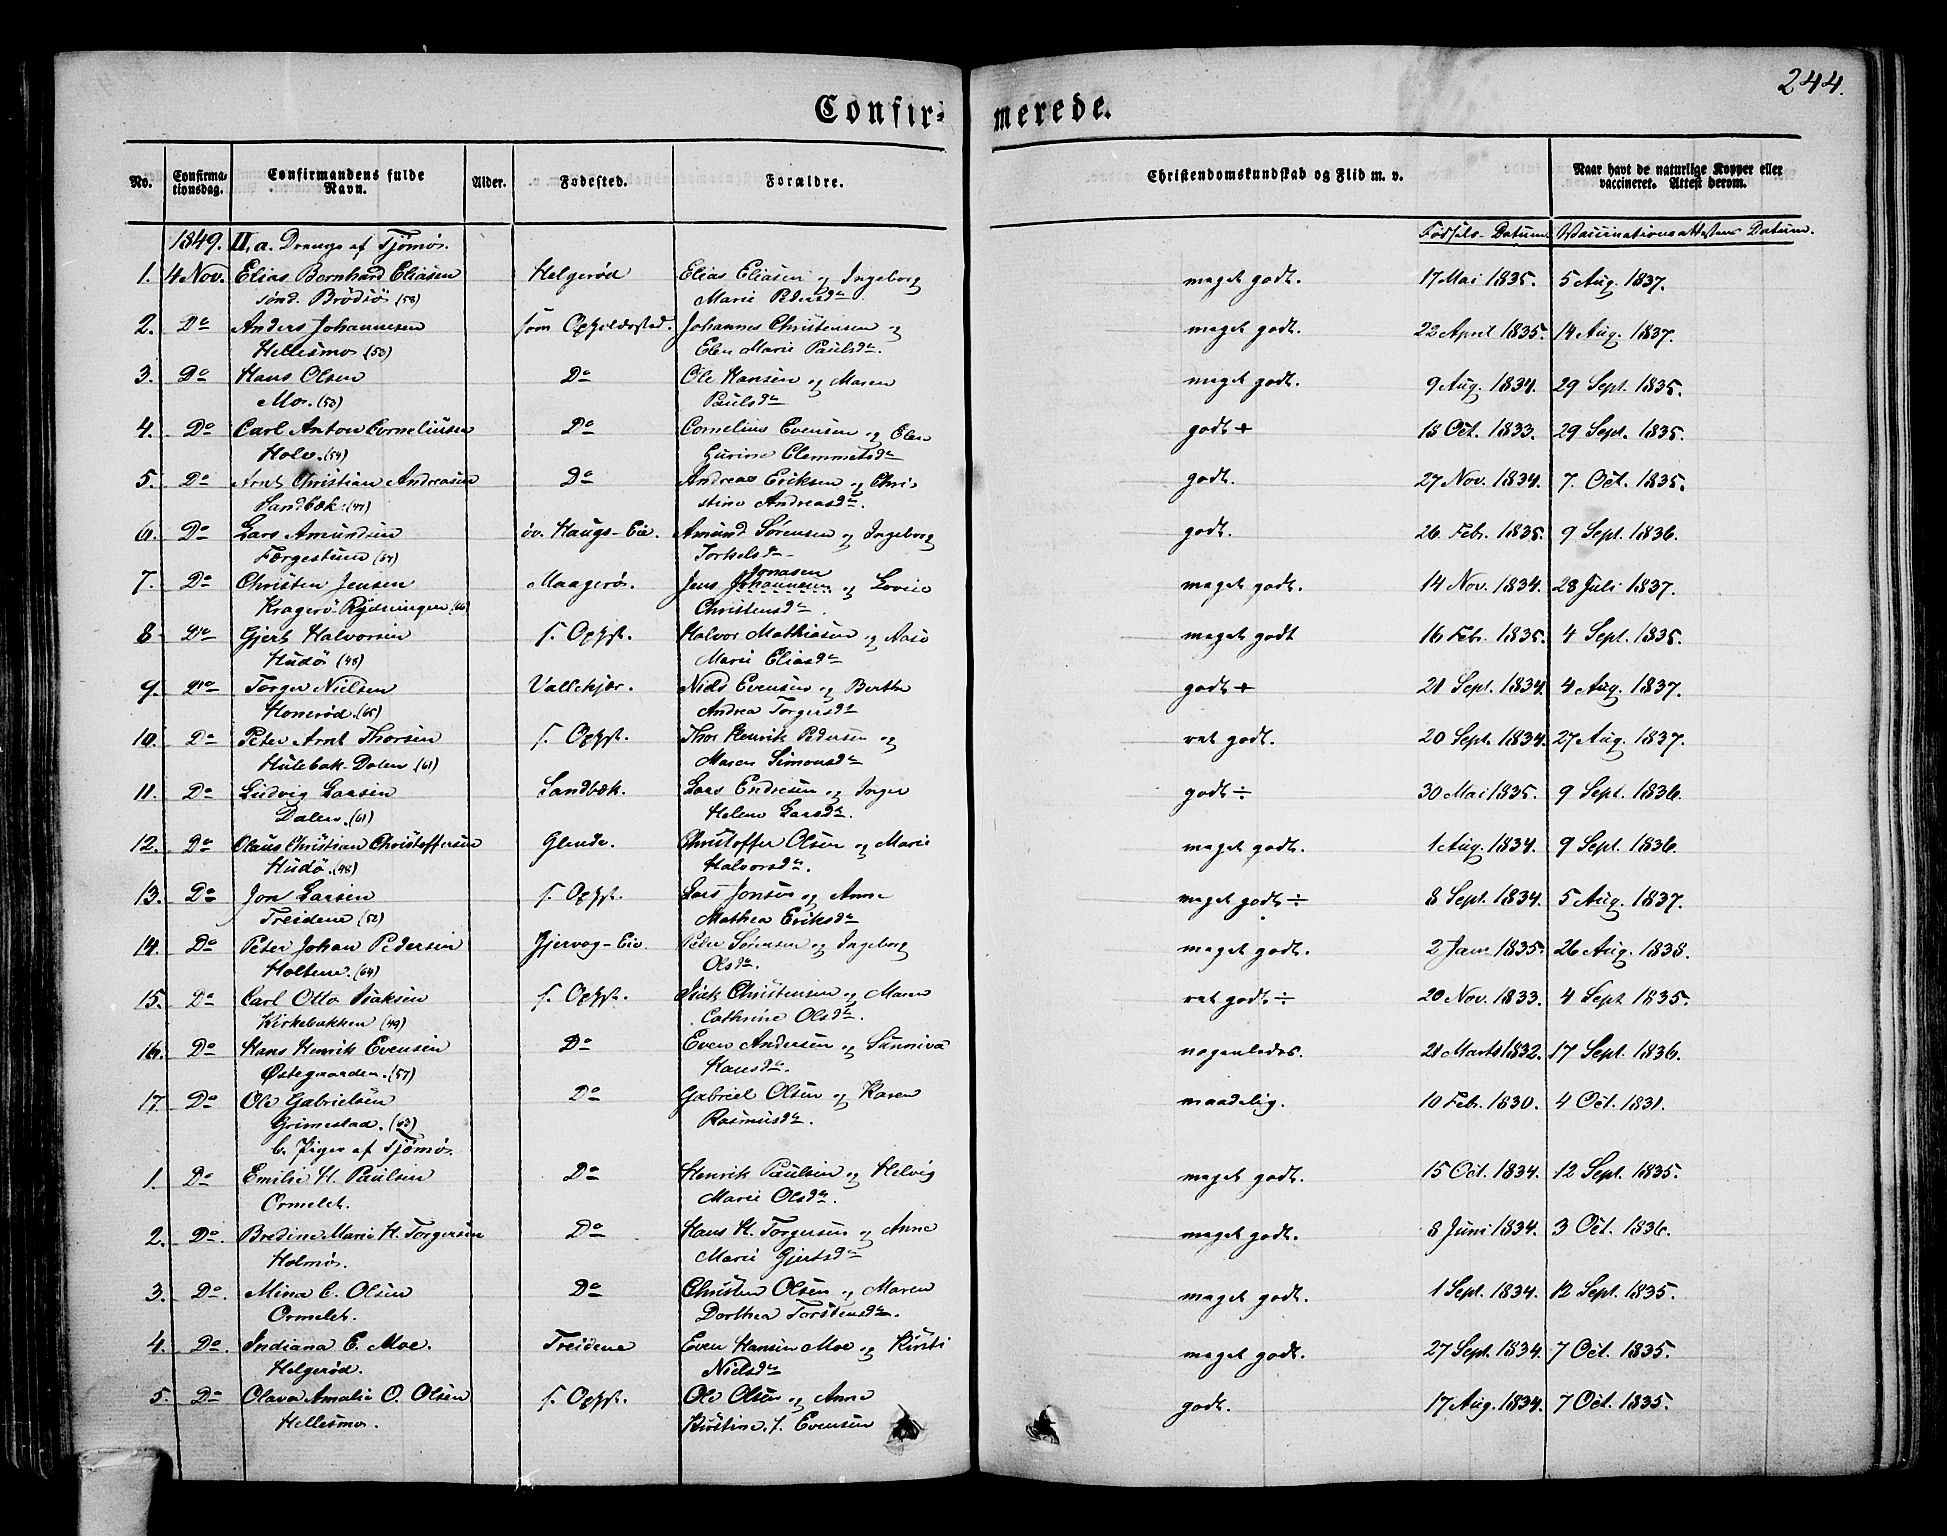 244.
Confir-
merede.
No. Confirma-tionsdag. Confirmandens fulde Navn. Alder. Fødested. Forældre. Christendomskundskab og Flid m. v. Naar havt de naturlige Kopper eller vaccineret. Attest derom.
1849. II, a. Drenge af Tjömös. Födsels-Datum Vaccinationsattestens Datum.
1. 4 Nov. Elias Bernhard Eliasen Helgeröd Elias Eliasen og Ingeborg maget godt. 17 Mai 1835. 5 Aug. 1837.
sönd. Brödsö (58) Marie Pedersdr
2. Do Anders Johannesen som Opholdssted. Johannes Christensen og maget godt. 22 April 1835. 14 Aug. 1837.
Hellesmo (53) Elen Marie Paulsdr.
3. Do Hans Olsen Do Ole Hansen og Maren maget godt. 9 Aug. 1834. 29 Sept. 1835.
Mo. (53) Paulsdr
4. Do Carl Anton Corneliusen Do Cornelius Evensen og Elen godt + 18 Oct. 1833. 29 Sept. 1835.
Holv. (54) Gurine Clemmetsdr
5. Do Arnt Christian Andreasen Do Andreas Eriksen og Chri- godt. 27 Nov. 1834. 7. Oct. 1835.
Sandbæk. (47) stine Andreasdr.
6. Do Lars Amundsen öv. Haugs-Eie. Amund Sörensen og Ingeborg godt. 26 Febr. 1835. 9 Sept. 1836.
Færgestuen (64) Torkelsdr
7. Do Christen Jensen Maagerö. Jens Johannesen Jonasen og Lovise maget godt. 14 Nov. 1834. 28 Juli 1837.
Kragerö-Rydningen (66) Christensdr.
8. Do Gjert Halvorsen s. Ophst. Halvor Mathiasen og Aase maget godt 16 Febr. 1835. 4 Sept. 1835.
Hudö (48) Marie Eliasdr
9. Do Torger Nielsen Vallekjær. Niels Evensen og Berthe godt + 21 Sept. 1834. 4 Aug. 1837.
Honeröd. (65) Andrea Torgersdr
10. Do Peter Arnt Thorsen s. Ophst. Thor Henrik Pedersen og ret godt. 20 Sept. 1834. 27 Aug. 1837.
Hulebak-Dalen. (61) Maren Simonsdr
11. Do Ludvig Larsen Sandbæk. Lars Endresen og Inger godt ÷ 30 Mai 1835. 9 Sept. 1836.
Dalen. (61) Helene Larsdr.
12. Do Olaus Christian Christoffersen Glende. Christoffer Olsen og Marie maget godt. 1 Aug. 1834. 9 Sept. 1836.
Hudö. (48) Halvorsdr.
13. Do Jon Larsen s. Ophst. Lars Jonsen og Anne maget godt ÷ 8 Sept. 1834. 5 Aug. 1837.
Treidene (52) Mathea Eriksdr
14. Do Peter Johan Pedersen Gjervog-Eie. Peder Sörensen og Ingeborg maget godt. 2 Jan. 1835. 26 Aug. 1838.
Holtene. (64) Olsdr.
15. Do Carl Otto Isaksen s. Ophst. Isak Christensen og Maren ret godt ÷ 20 Nov. 1833. 4 Sept 1835.
Kirkebakken (49) Cathrine Olsdr.
16. Do Hans Henrik Evensen Do Even Andersen og Sünniva nogenledes. 21 Marts 1832. 17 Sept. 1836.
Østegaarden. (57) Hansdr.
17. Do Ole Gabrielsen Do Gabriel Olsen og Karen maadelig. 10 Febr. 1830. 4 Oct. 1831.
Grimestad. (63) Rasmusdr.
b. Piger af Tjömös.
1. Do Emilie H. Paulsen Do Henrik Paulsen og Helvig maget godt. 15 Oct. 1834. 12 Sept. 1835.
Ormelet. Marie Olsdr.
2. Do. Bredine Marie H. Torgersen Do Hans H. Torgersen og Anne maget godt. 8 Juni 1834. 3 Oct. 1836.
Holmös. Marie Gjertsdr
3. Do. Mina C. Olsen Do Christen Olsen og Maren maget godt. 1 Sept. 1834. 12 Sept. 1835.
Ormelet. Dorthea Torstensdr.
4. Do. Indiana E. Moe. Treidene Even Hansen Moe og Kirsti maget godt. 27 Sept. 1834. 7 Oct. 1835.
Helgeröd. Nielsdr
5. Do Olava Amalie O. Olsen s. Ophst. Ole Olsen og Anne godt. 17 Aug. 1834. 7 Oct. 1835.
Hellesmo. Kirstine f. Evensen